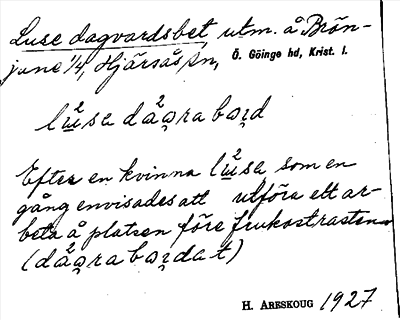 Luse dagvardsbet, utm. å Brön-
june 1/4, Hjärsås sn,
Ö. Göinge hd, Krist. l.
lu̲²sa då²ǫra bǫrd
Efter en kvinna lu̲²sa som en
gång envisades att utföra ett ar-
bete å platsen före frukostrasten
(då²ǫra bǫrdat)
H. ARESKOUG 1927